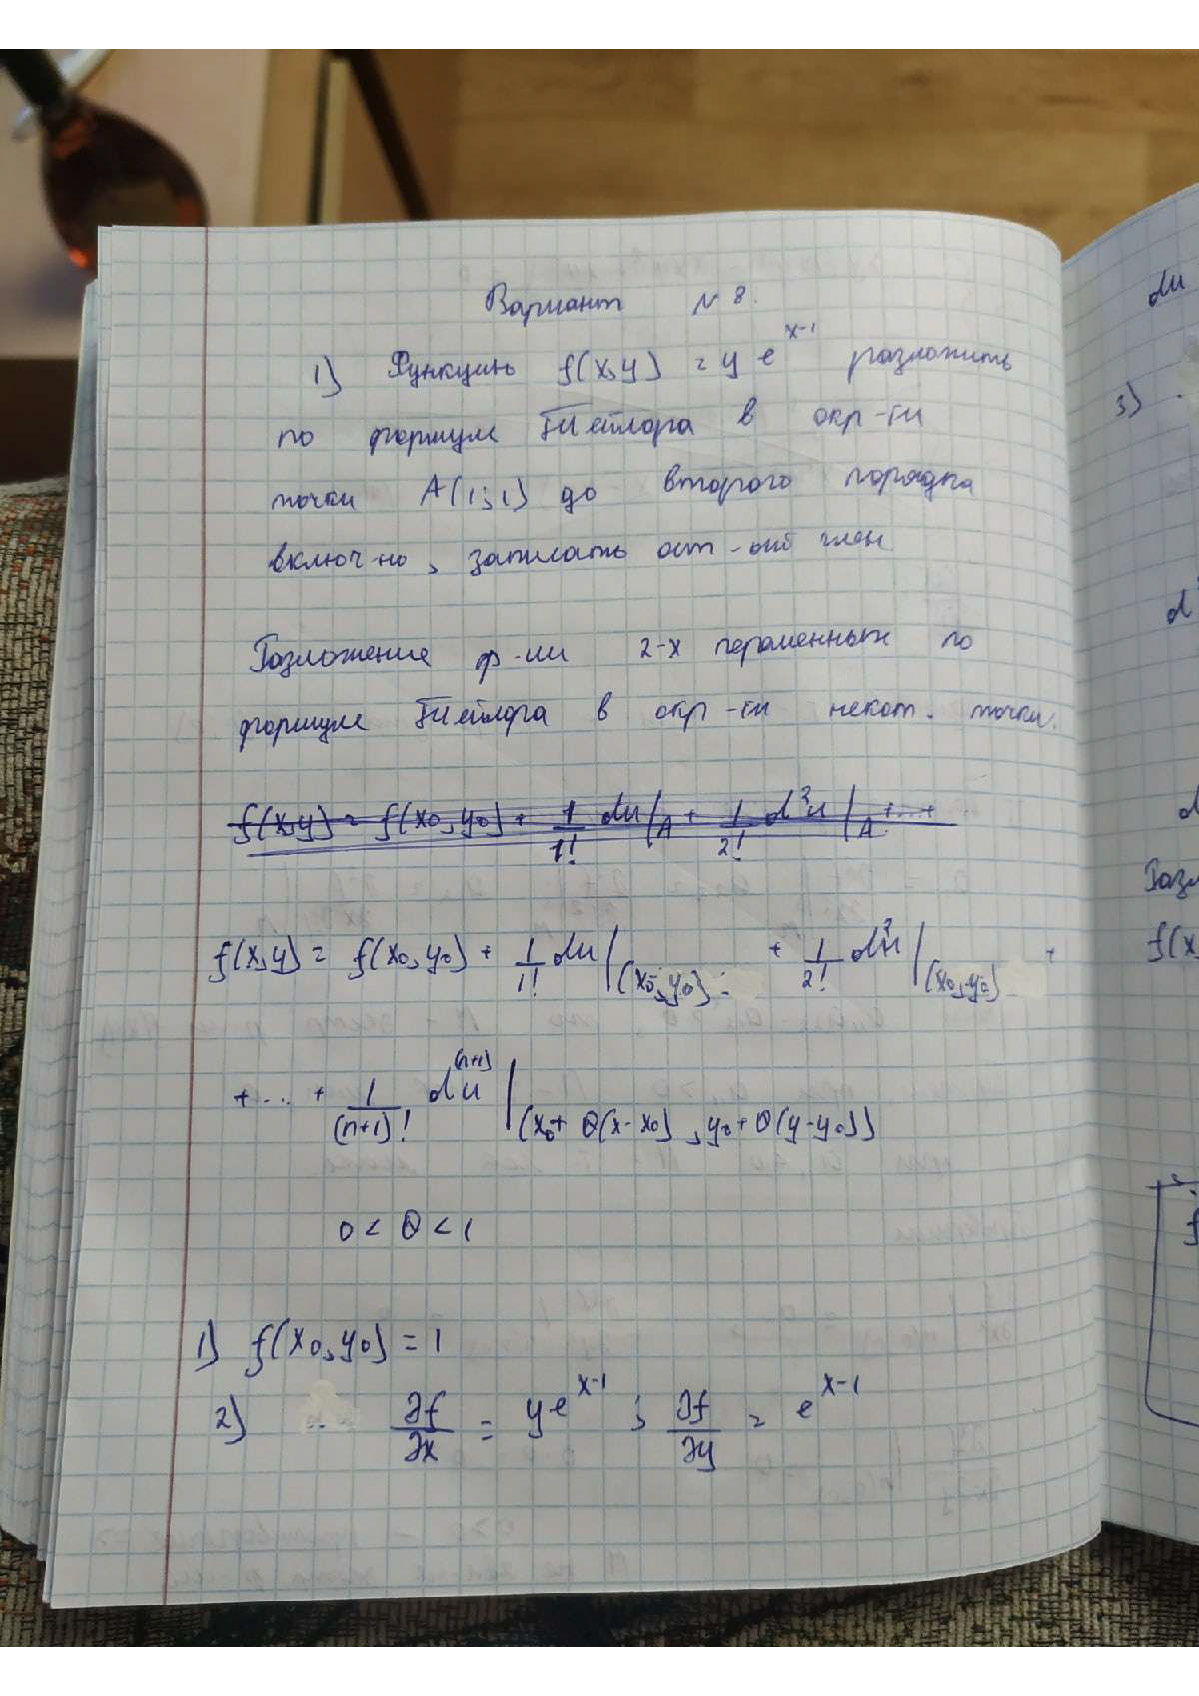 Вариант № 8.
1) Функцию f(x,y) = y e^{x-1} разложить
по формуле Тейлора в окр-ти
точки A(1;1) до второго порядка
включ-но, записать ост-ый член
Разложение ф-ии 2-х переменных по
формуле Тейлора в окр-ти некот. точки.
f(x,y) = f(x₀,y₀) + 1/1! du|_A + 1/2! d²u|_A + ...+
f(x,y) = f(x₀,y₀) + 1/1! du|_(x₀,y₀) + 1/2! d²u|_(x₀,y₀) +
+ ... + 1/(n+1)! d^{(n+1)}u|_(x₀+θ(x-x₀), y₀+θ(y-y₀))
0 < θ < 1
1) f(x₀,y₀) = 1
2) ∂f/∂x = ye^{x-1} ; ∂f/∂y = e^{x-1}
du
3)
f(x,